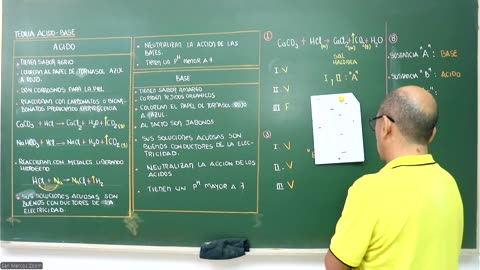 TEORIA ACIDO-BASE
ACIDO
• TIENEN SABOR AGRIO
• COLOREAN EL PAPEL DE TORNASOL AZUL
A ROJO.
• SON CORROSIVOS PARA LA PIEL
• REACCIONAN CON CARBONATOS O BICAR
BONATOS PRODUCIENDO EFERVESCENCIA
CaCO₃ + HCl → CaCl₂ + H₂O + CO₂(g)
NaHCO₃ + HCl → NaCl + H₂O + CO₂(g)
• REACCIONAN CON METALES LIBERANDO
HIDROGENO
HCl + Na → NaCl + H₂
• SUS SOLUCIONES ACUOSAS SON
BUENOS CONDUCTORES DE
ELECTRICIDAD.
• NEUTRALIZAN LA ACCION DE LAS
BASES.
• TIENEN UN pH MENOR A 7
BASE
• TIENEN SABOR AMARGO
• CORROEN TEJIDOS ORGANICOS
• COLOREAN EL PAPEL DE TORNASOL ROJO
A AZUL.
• AL TACTO SON JABONOSOS
• SUS SOLUCIONES ACUOSAS SON
BUENOS CONDUCTORES DE LA ELEC-
TRICIDAD.
• NEUTRALIZAN LA ACCION DE LOS
ACIDOS
• TIENEN UN pH MAYOR A 7
① CaCO₃ + HCl → CaCl₂ + CO₂ + H₂O
SAL
HALOIDEA
I. V
II. V
III. F
I, II : "A"
③
I. V
II. V
III. V
⑧
SUSTANCIA "A": BASE
SUSTANCIA "B": ACIDO
San Marcos Zoom